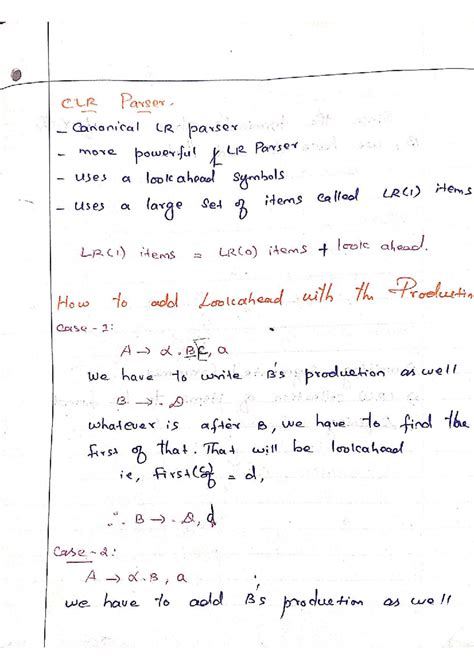 CLR Parser.
- Canonical LR parser
- more powerful LR Parser
- uses a lookahead symbols
- uses a large set of items called LR(1) items
LR(1) items = LR(0) items + look ahead.
How to add Lookahead with the Production
Case - 1:
A → α.BC, a
We have to write B's production as well
B → .D
whatever is after B, we have to find the
first of that. That will be lookahead
ie, first( = d,
∴ B → .D, d
Case - 2:
A → α.B, a
we have to add B's production as well